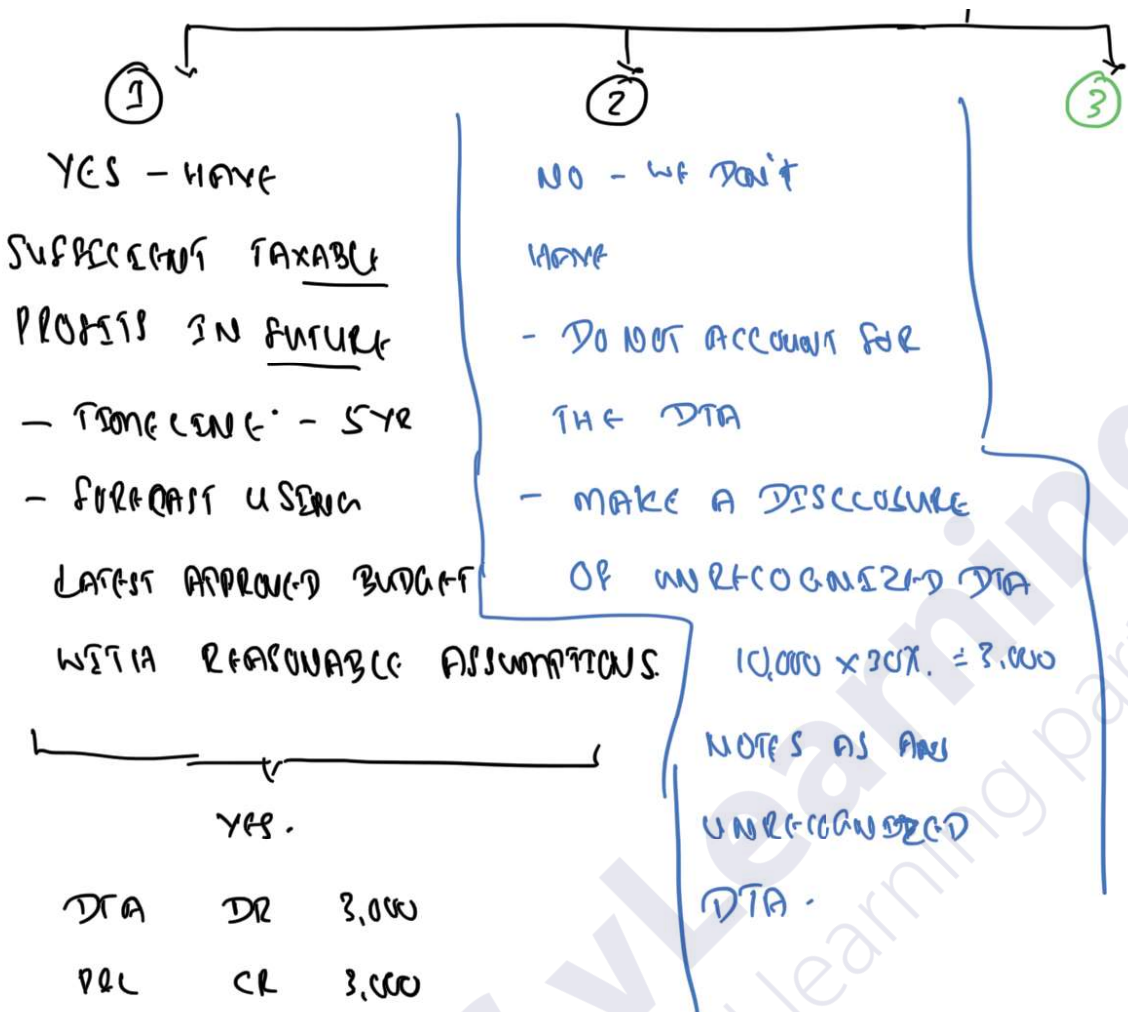 1
YES - HAVE
SUFFICIENT TAXABLE
PROFITS IN FUTURE
- TIMELINE - 5YR
- FORECAST USING
LATEST APPROVED BUDGET
WITH REASONABLE ASSUMPTIONS.
YES.
DTA DR 3,000
P&L CR 3,000
2
NO - WE DON'T
HAVE
- DO NOT ACCOUNT FOR
THE DTA
- MAKE A DISCLOSURE
OF UNRECOGNIZED DTA
10,000 x 30%. = 3,000
NOTES AS AN
UNRECOGNIZED
DTA.
3
vLearning
learning par